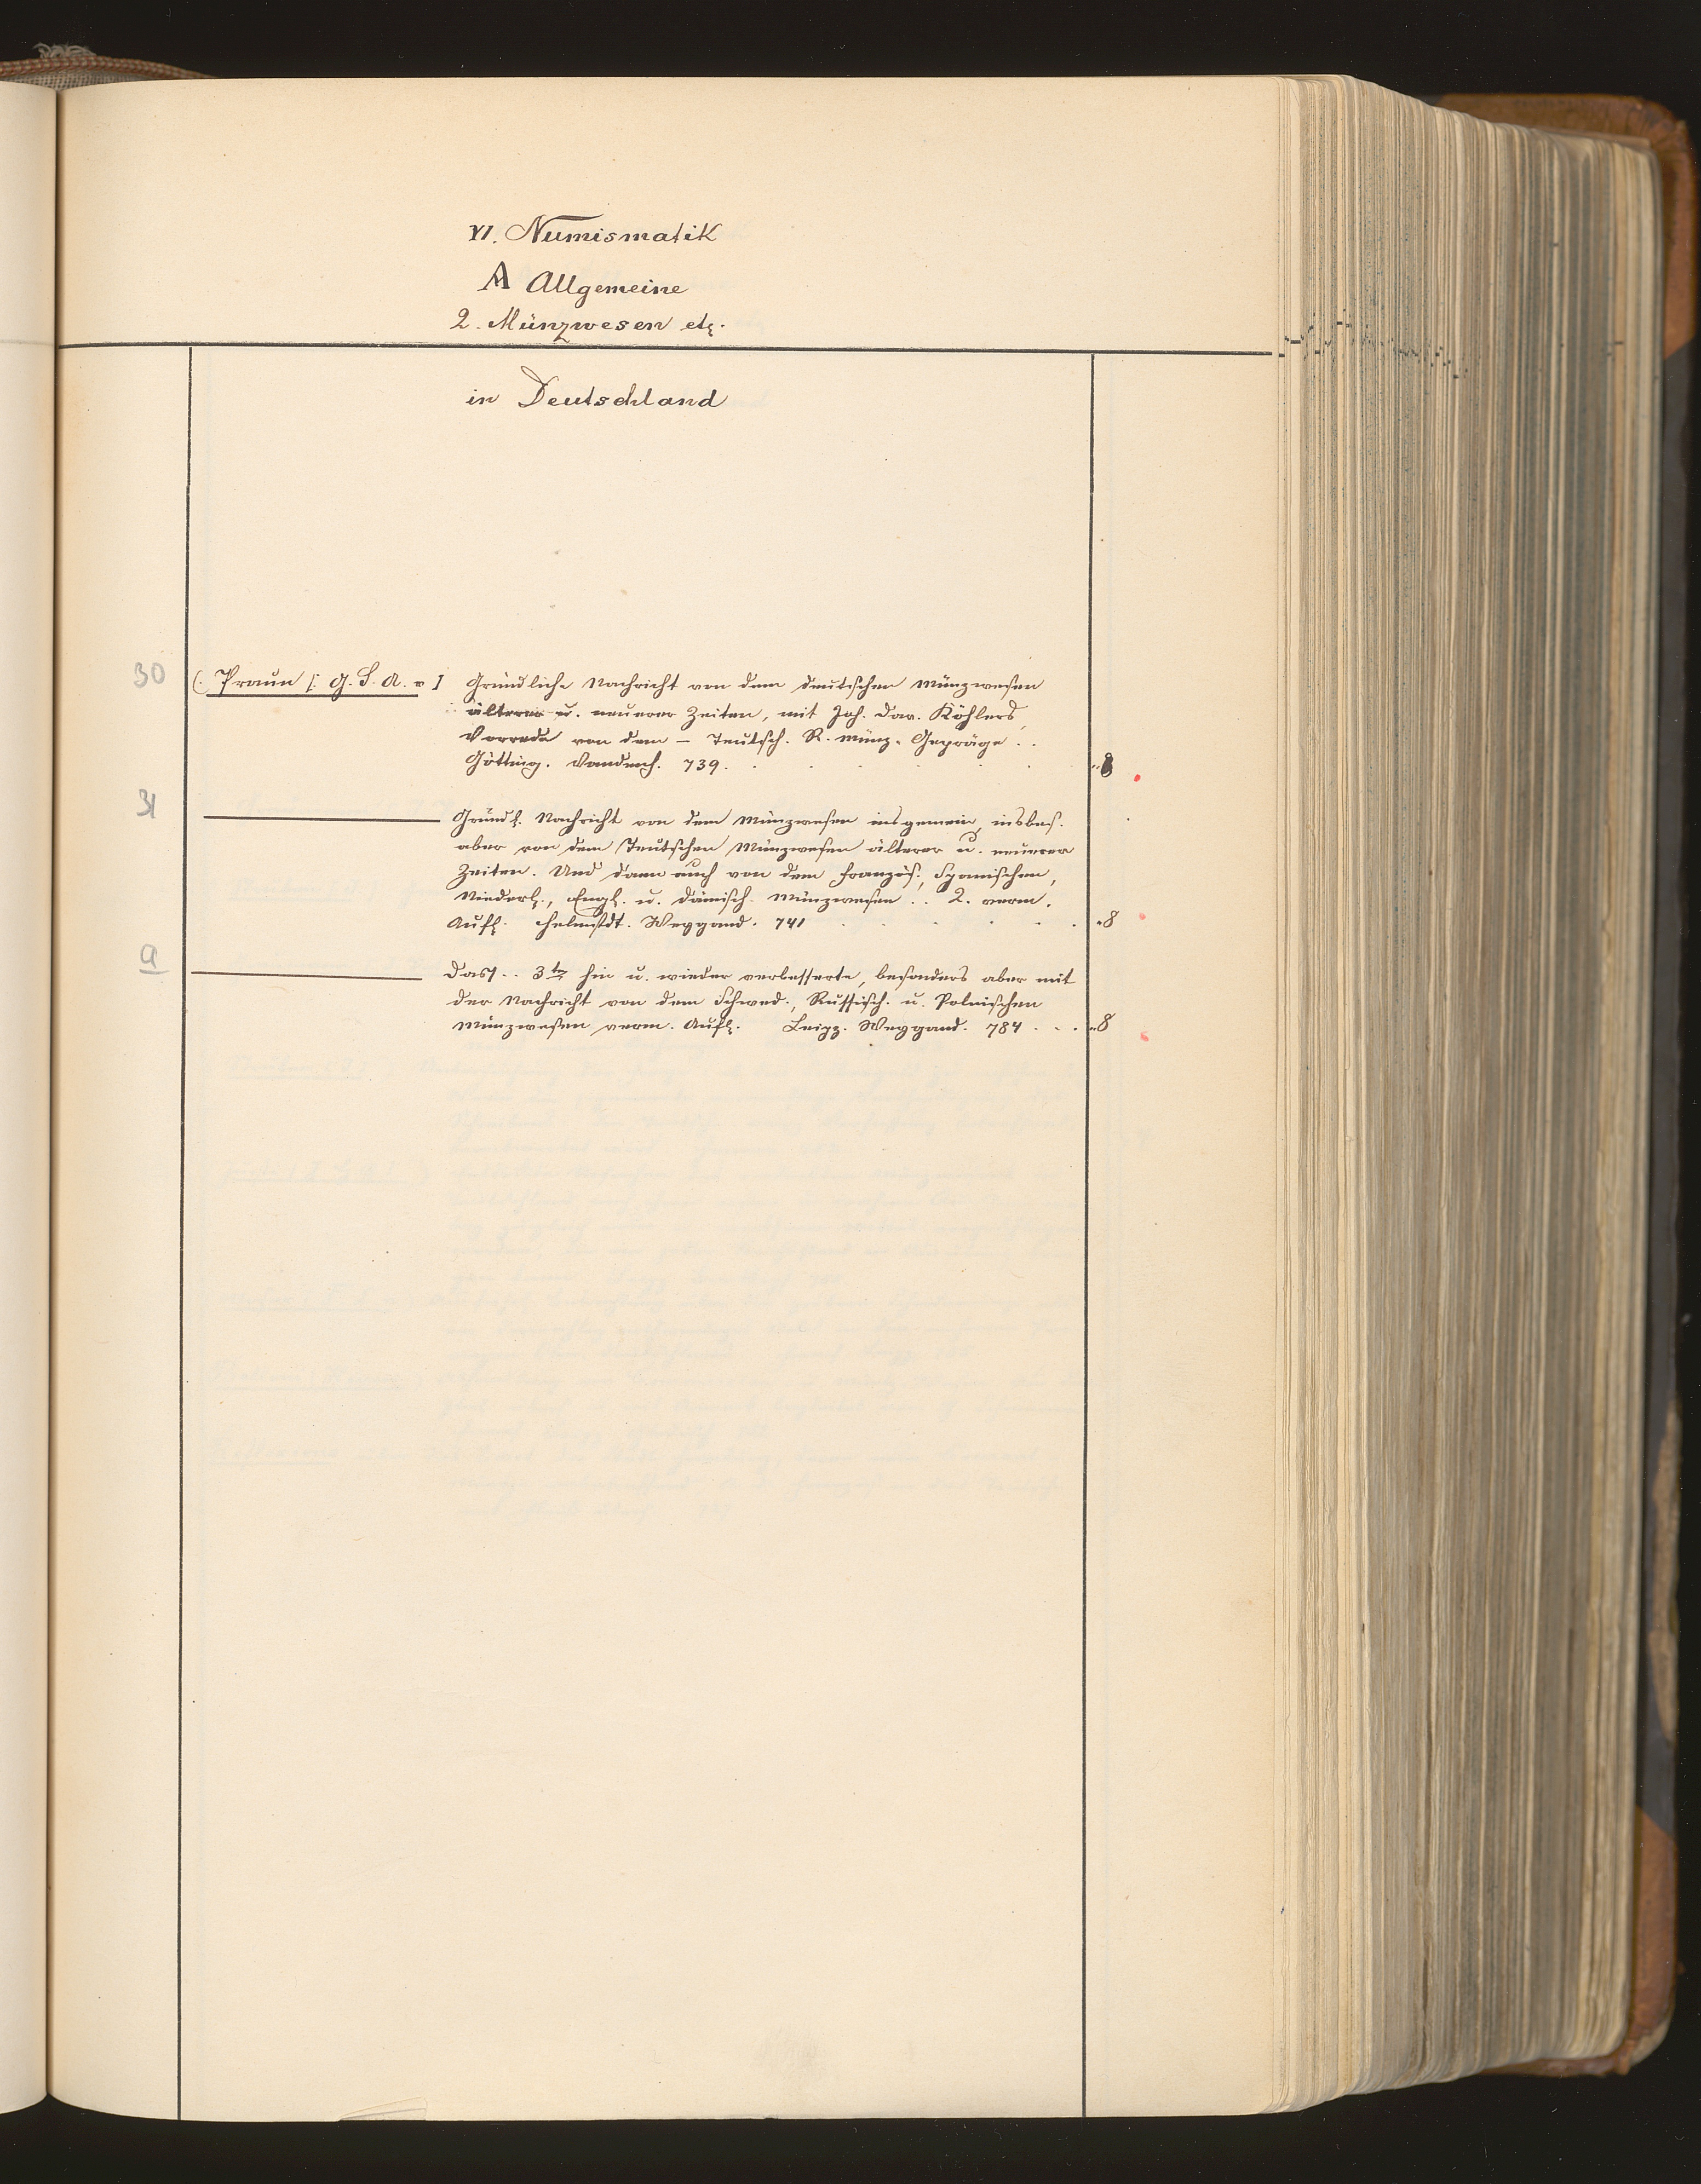 VI. Numismatik
A Allgemeine
2. Münzwesen etc.
in Deutschland
30 (: Praun [: G. S. A. v ] Gründliche Nachricht von dem deutschen Münzwesen
älterer u. neuerer Zeiten, mit Joh. Dav. Köhlers
Vorrede von dem – Teutsch. R. Münz-Gepräge . .
Götting. Vandenh. 739. 8
31 Gründl. Nachricht von dem Münzwesen insgemein, insbes.
aber von dem Teutschen Münzwesen älterer u. neuerer
Zeiten. Und dann auch von dem französ., Spanischen,
Niederl., Engl. u. Dänisch. Münzwesen . . 2. verm.
Aufl. Helmstdt. Weygand. 741 8
a Dass. . . 3te hin u. wieder verbesserte, besonders aber mit
der Nachricht von dem Schwed., Russisch. u. Polnischen
Münzwesen verm. Aufl. Leipz. Weygand. 784 . . . 8